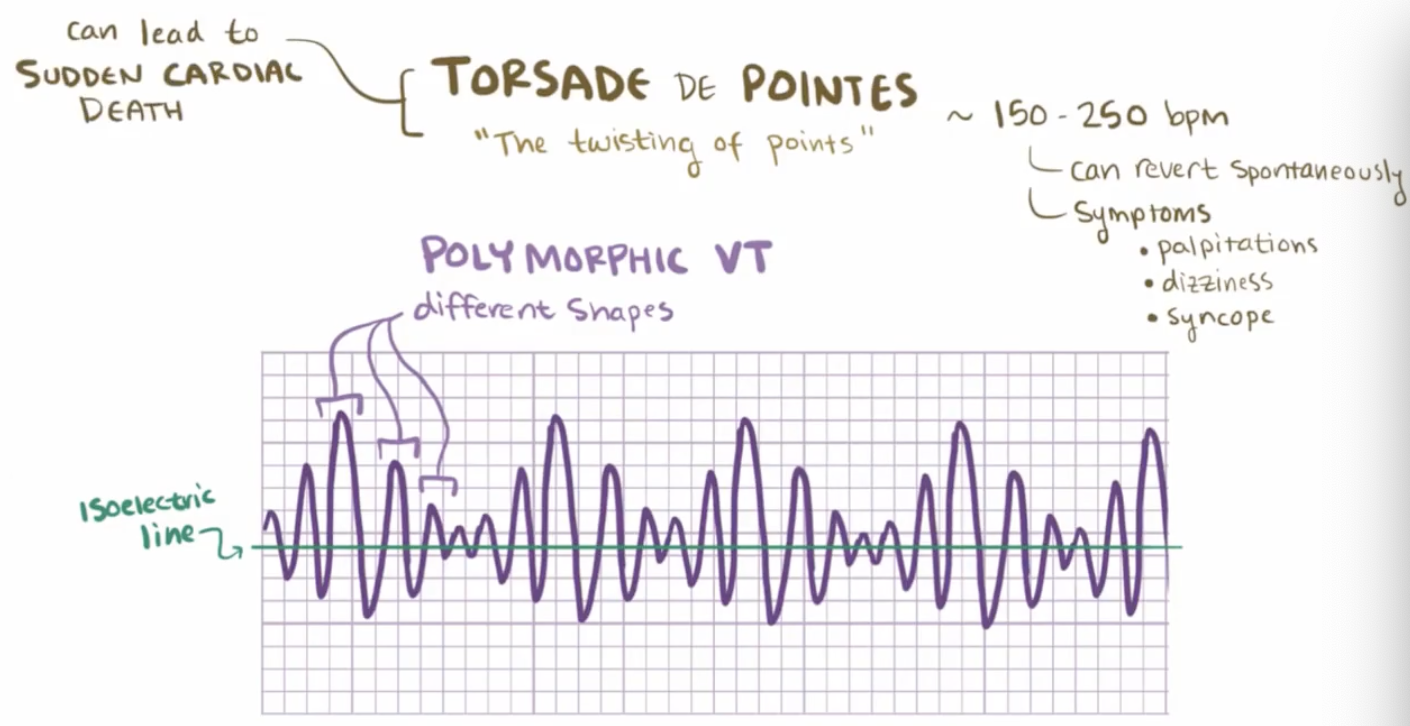 can lead to
SUDDEN CARDIAC
DEATH
TORSADE DE POINTES
"The twisting of points"
~ 150 - 250 bpm
can revert spontaneously
Symptoms
• palpitations
• dizziness
• syncope
POLYMORPHIC VT
different shapes
isoelectric
line